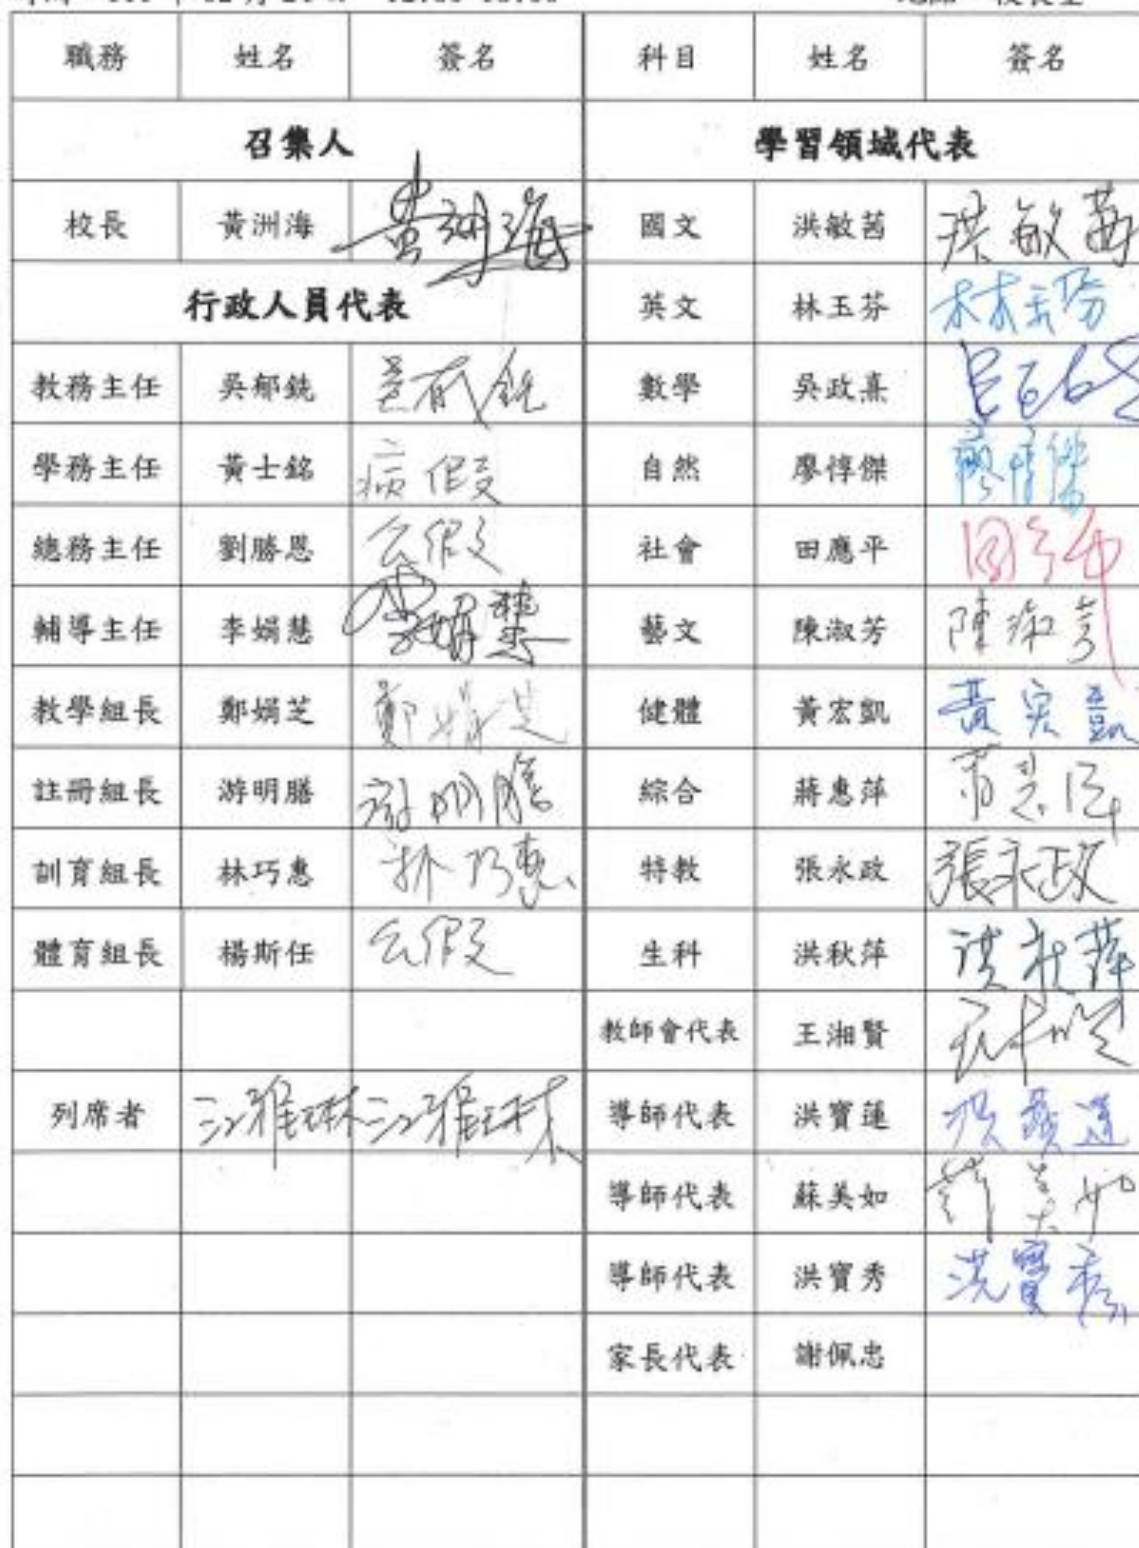 職務 姓名 簽名 科目 姓名 簽名
召集人 學習領域代表
校長 黃洲海 黃洲海 國文 洪敏茜 洪敏茜
行政人員代表 英文 林玉芬 林玉芬
教務主任 吳郁銑 吳郁銑 數學 吳政熹
學務主任 黃士銘 病假 自然 廖惇傑 廖惇傑
總務主任 劉勝恩 公假 社會 田應平
輔導主任 李娟慧 李娟慧 藝文 陳淑芳 陳淑芳
教學組長 鄭娟芝 鄭娟芝 健體 黃宏凱 黃宏凱
註冊組長 游明膳 游明膳 綜合 蔣惠萍
訓育組長 林巧惠 林巧惠 特教 張永政 張永政
體育組長 楊斯任 公假 生科 洪秋萍 洪秋萍
教師會代表 王湘賢
列席者 江雅琳 江雅琳 導師代表 洪寶蓮 洪寶蓮
導師代表 蘇美如
導師代表 洪寶秀 洪寶秀
家長代表 謝佩忠